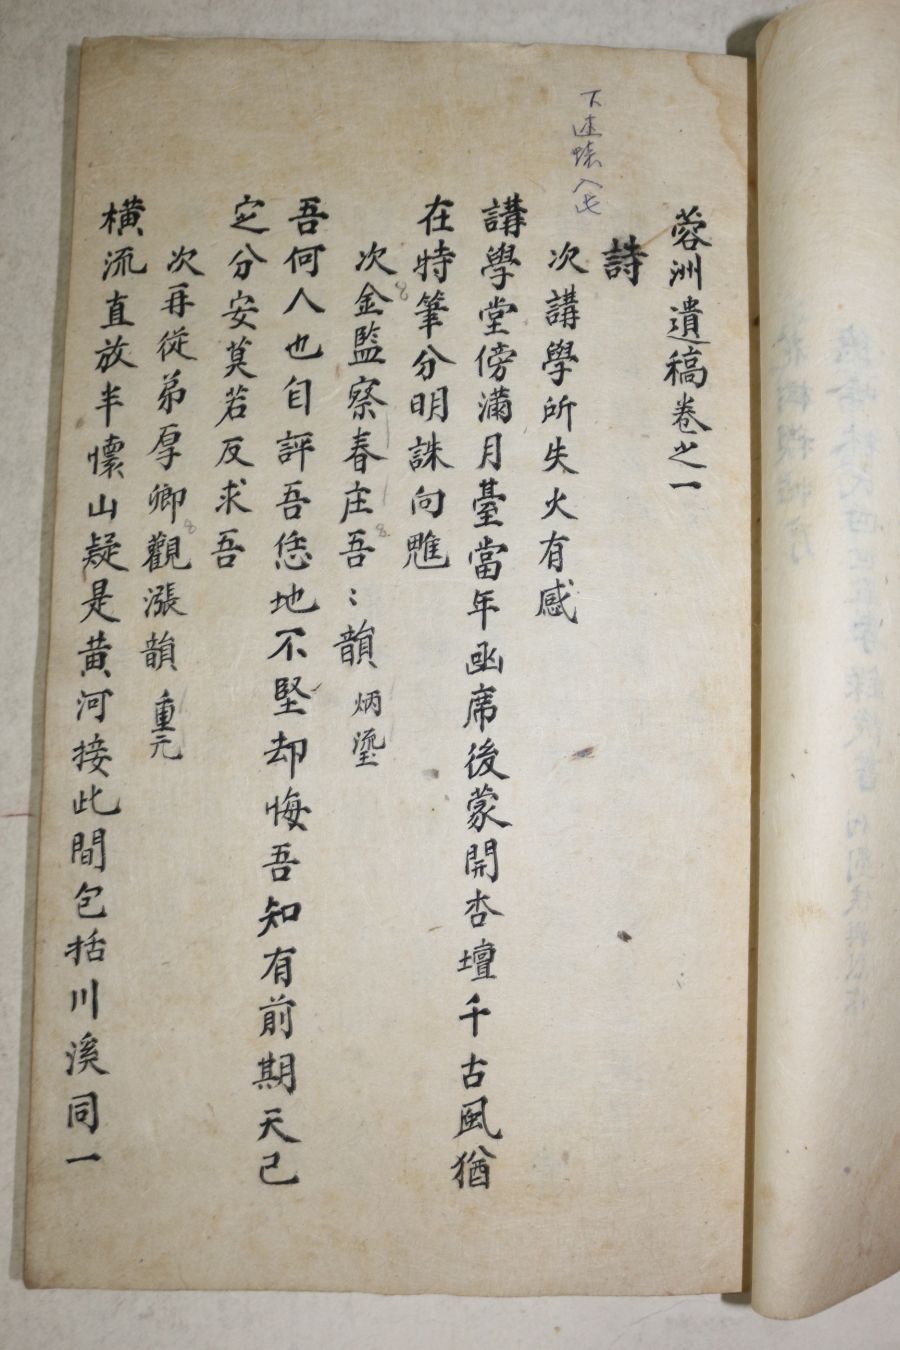 蓉洲遺稿卷之一
詩
次講學所失火有感
講學堂傍滿月臺當年函席後蒙開杏壇千古風猶
在特筆分明誅向魋
次金監察春庄吾〻韻 炳瀅
吾何人也自評吾恁地不堅却悔吾知有前期天已
定分安莫若反求吾
次再從弟厚卿觀漲韻 重元
橫流直放半懷山疑是黃河接此間包括川溪同一